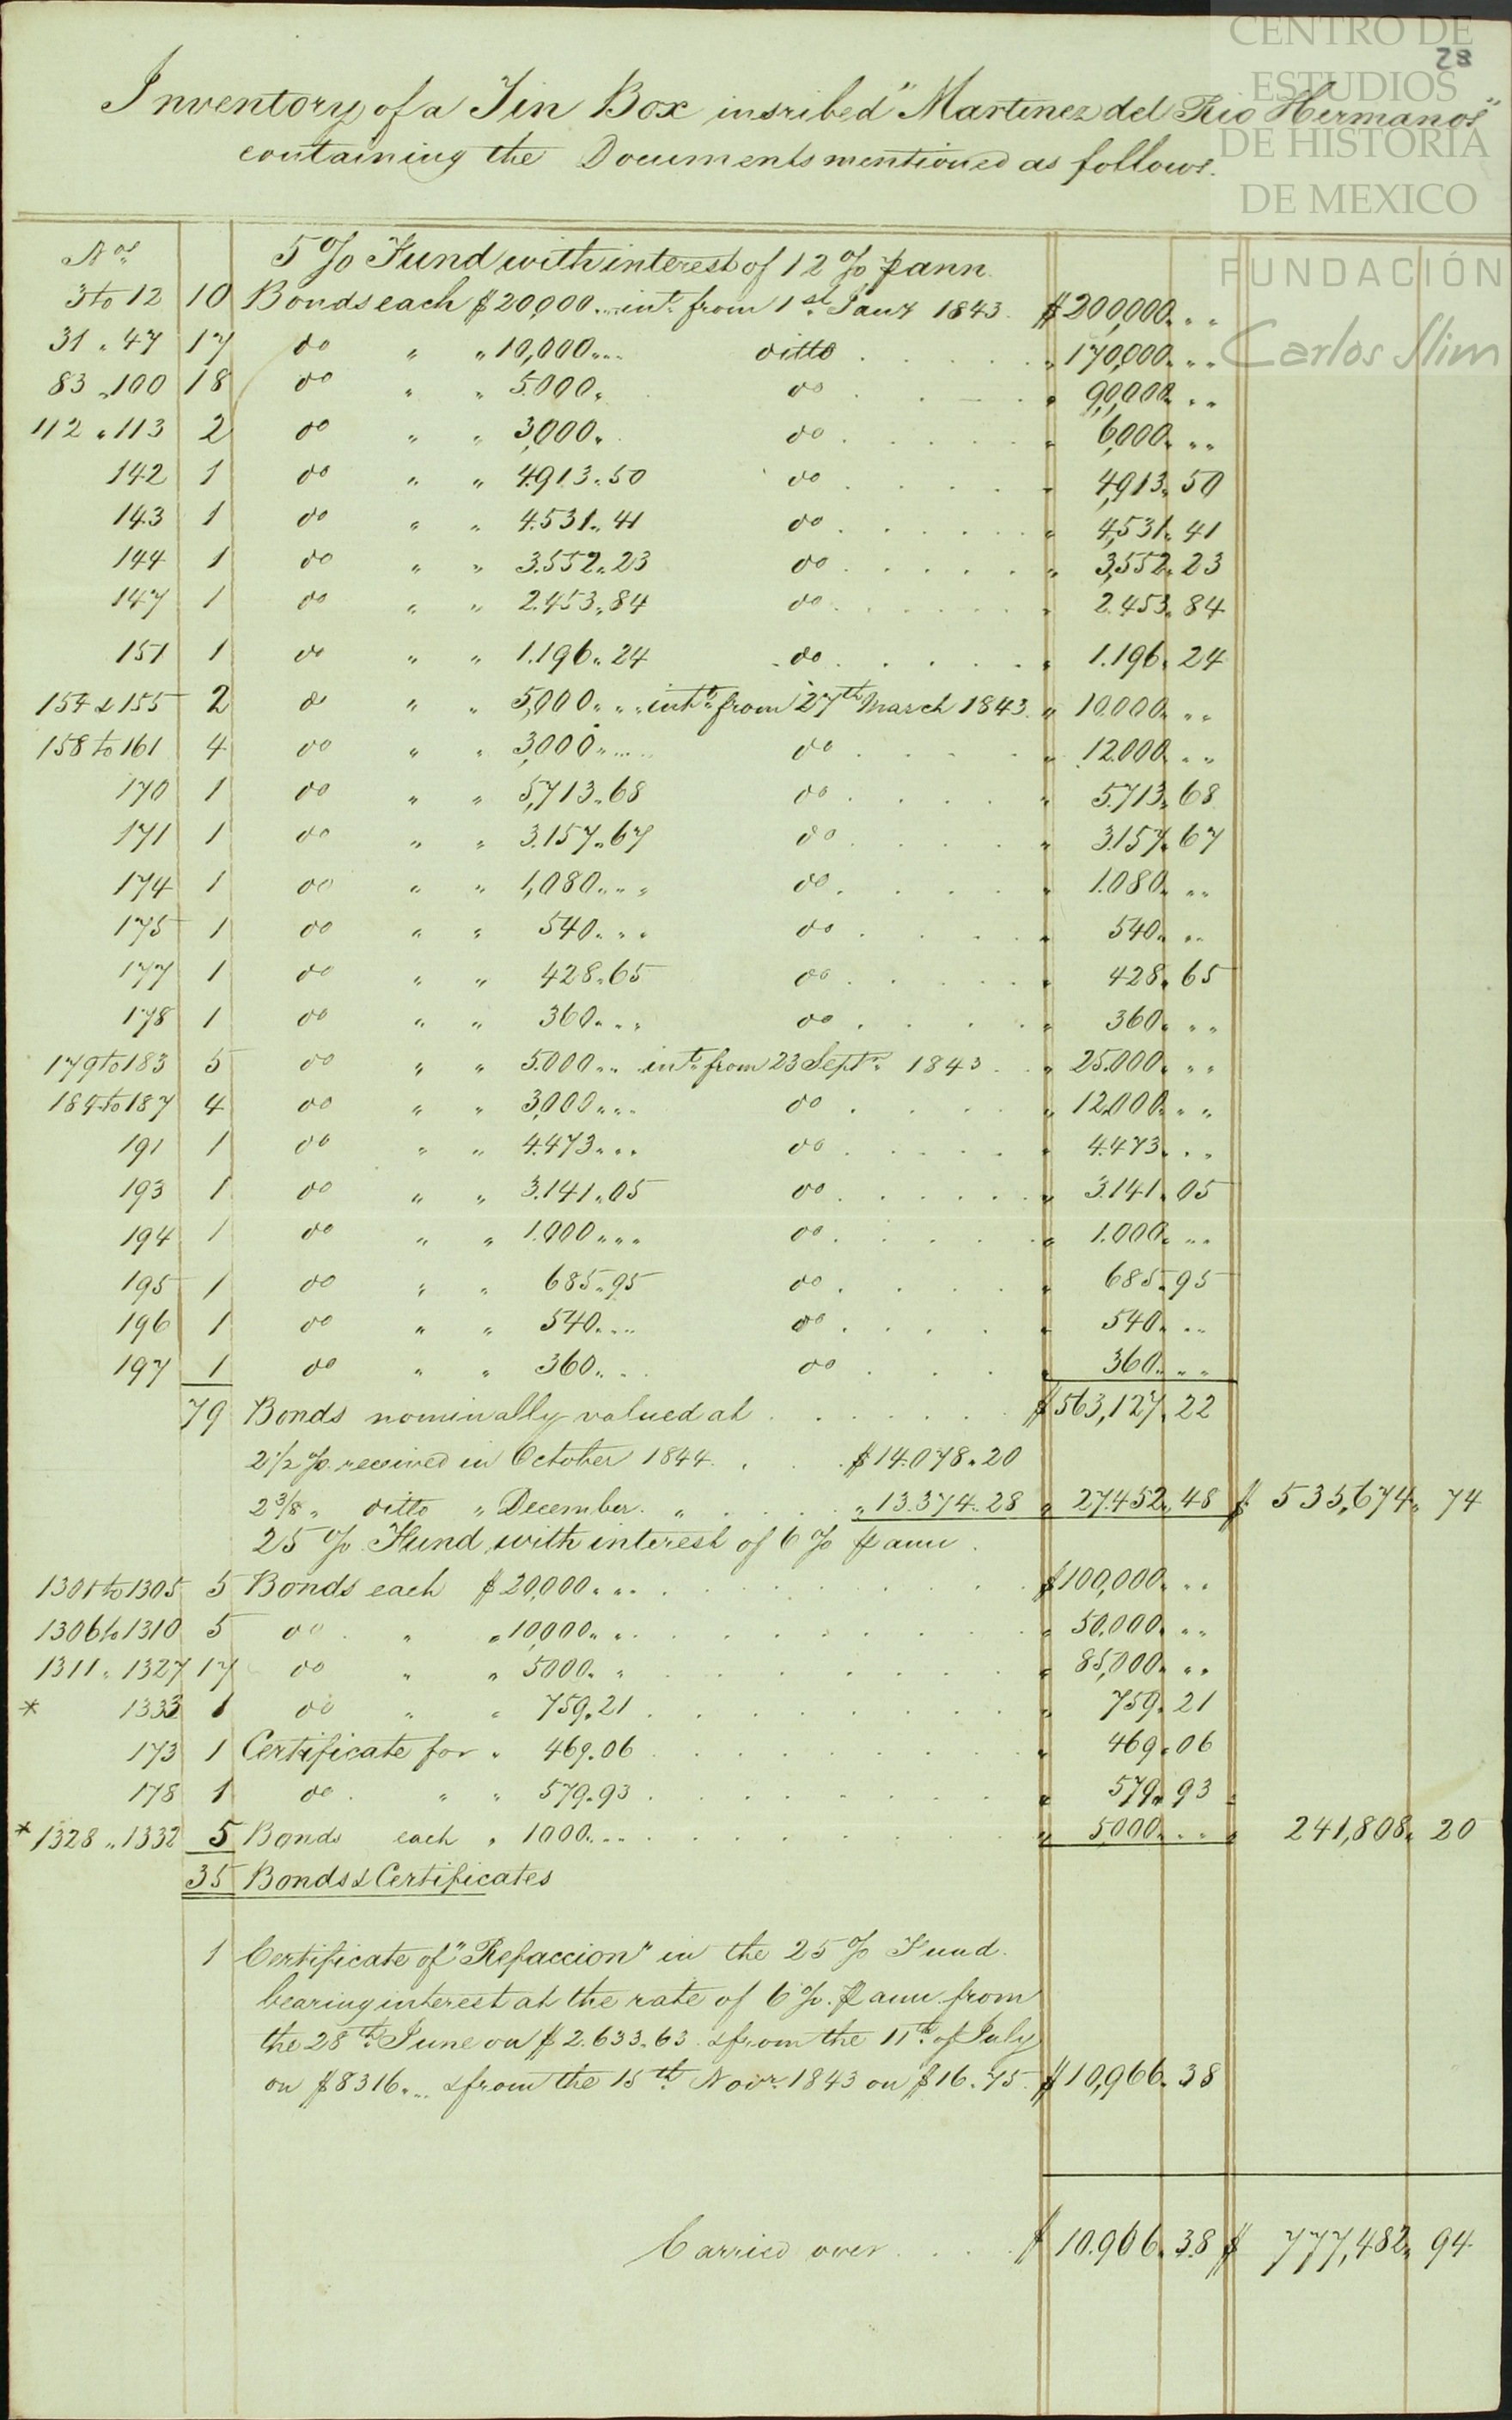 CENTRO DE
ESTUDIOS
DE HISTORIA
DE MEXICO
FUNDACIÓN
Carlos Slim
28
Inventory of a Tin Box inscribed "Martinez del Rio Hermanos"
containing the Documents mentioned as follows.
Nos. 5 % Fund with interest of 12 % p ann.
3 to 12 10 Bonds each $ 20,000 .. .. int. from 1st. Jany 1843. $ 200,000 " "
31 " 47 17 do " " 10,000 " " ditto " 170,000 " "
83 " 100 18 do " " 5.000 " do " 90,000 " "
112 " 113 2 do " " 3,000 " do " 6,000 " "
142 1 do " " 4.913 " 50 do " 4,913 " 50
143 1 do " " 4.531 " 41 do " 4,531 " 41
144 1 do " " 3.552 " 23 do " 3,552 " 23
147 1 do " " 2.453 " 84 do " 2.453 " 84
151 1 do " " 1.196 " 24 do " 1.196 " 24
154 & 155 2 do " " 5,000 " " int. from 27th March 1843. " 10.000 " "
158 to 161 4 do " " 3,000 " " do " 12.000 " "
170 1 do " " 5,713 " 68 do " 5.713 " 68
171 1 do " " 3.157 " 67 do " 3.157 " 67
174 1 do " " 1,080 " " do " 1.080 " "
175 1 do " " 540 " " do " 540 " "
177 1 do " " 428 " 65 do " 428 " 65
178 1 do " " 360 " " do " 360 " "
179 to 183 5 do " " 5.000 " " int. from 23 Septr. 1843 " 25.000 " "
184 to 187 4 do " " 3,000 " " do " 12,000 " "
191 1 do " " 4.473 " " do " 4.473 " "
193 1 do " " 3.141 " 05 do " 3.141 " 05
194 1 do " " 1.000 " " do " 1.000 " "
195 1 do " " 685 " 95 do " 685 " 95
196 1 do " " 540 " " do " 540 " "
197 1 do " " 360 " " do " 360 " "
79 Bonds nominally valued at $ 563,127 " 22
2 1/2 % received in October 1844. $ 14.078 " 20
2 3/8 " ditto " December " " 13.374 " 28 " 27.452 " 48 $ 535,674 " 74
25 % Fund with interest of 6 % p ann.
1301 to 1305 5 Bonds each $ 20,000 " " $ 100,000 " "
1306 to 1310 5 do " " 10,000 " " " 50.000 " "
1311 " 1327 17 do " " 5000 " " " 85,000 " "
* 1333 1 do " " 759 " 21 " 759 " 21
173 1 Certificate for " 469 " 06 " 469 " 06
178 1 do " " 579 " 93 " 579 " 93
* 1328 " 1332 5 Bonds each " 1000 " " " 5,000 " " " 241,808 " 20
35 Bonds & Certificates
1 Certificate of "Refaccion" in the 25 % Fund.
bearing interest at the rate of 6 % p ann. from
the 28th. June on $ 2.633 " 63 & from the 11th. of July
on $ 8316 " " & from the 15th Novr. 1843 on $ 16 " 75. $ 10,966 " 38
Carried over $ 10.966 " 38 $ 777,482 " 94